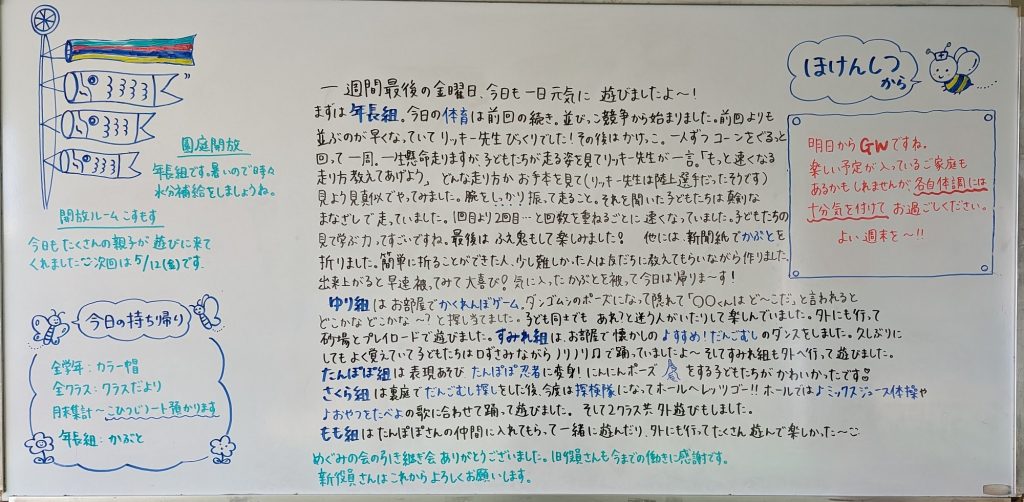 園庭開放
年長組です。暑いので時々
水分補給をしましょうね。
開放ルーム こすもす
今日もたくさんの親子が遊びに来て
くれました 次回は5/12(金)です。
今日の持ち帰り
全学年：カラー帽
全クラス：クラスだより
月末集計〜こひつじノート預かります
年長組：かぶと
一週間最後の金曜日、今日も一日元気に遊びましたよ〜！
まずは年長組。今日の体育は前回の続き。並びっこ競争から始まりました。前回よりも
並ぶのが早くなっていてリッキー先生びっくりでした！その後はかけっこ。一人ずつコーンをぐるっと
回って一周。一生懸命走りますが、子どもたちが走る姿を見てリッキー先生が一言。「もっと速くなる
走り方教えてあげよう」 どんな走り方かお手本を見て(リッキー先生は陸上選手だったそうです)
見よう見真似でやってみました。腕をしっかり振って走ること。それを聞いた子どもたちは真剣な
まなざしで走っていました。1回目より2回目…と回数を重ねるごとに速くなっていました。子どもたちの
見て学ぶ力ってすごいですね。最後はふえ鬼もして楽しみました！ 他には、新聞紙でかぶとを
折りました。簡単に折ることができた人、少し難しかった人は友だちに教えてもらいながら作りました。
出来上がると早速被ってみて大喜び♪気に入ったかぶとを被って今日は帰りま〜す！
ゆり組はお部屋でかくれんぼゲーム。ダンゴムシのポーズになって隠れて「〇〇くんはど〜こだ」と言われると
どこかなどこかな〜？と探し当てました。子ども同士でもあれ？と迷う人がいたりして楽しんでいました。外にも行って
砂場とプレイロードで遊びました。すみれ組は、お部屋で懐かしの♪すすめ！だんごむしのダンスをしました。久しぶりに
してもよく覚えていて子どもたちは口ずさみながらノリノリ♫で踊っていましたよ〜そしてすみれ組も外へ行って遊びました。
たんぽぽ組は表現あそび たんぽぽ忍者に変身！にんにんポーズをする子どもたちがかわいかったです
さくら組は裏庭でだんごむし探しをした後、今度は探検隊になってホールへレッツゴー!!ホールでは♪ミックスジュース体操や
♪おやつをたべよの歌に合わせて踊って遊びました。そして2クラス共外遊びもしました。
もも組はたんぽぽさんの仲間に入れてもらって一緒に遊んだり、外にも行ってたくさん遊んで楽しかった〜
めぐみの会の引き継ぎ会ありがとうございました。旧役員さんも今までの働きに感謝です。
新役員さんはこれからよろしくお願いします。
ほけんしつ
から
明日からGWですね。
楽しい予定が入っているご家庭も
あるかもしれませんが、各自体調には
十分気を付けてお過ごしください。
よい週末を〜!!